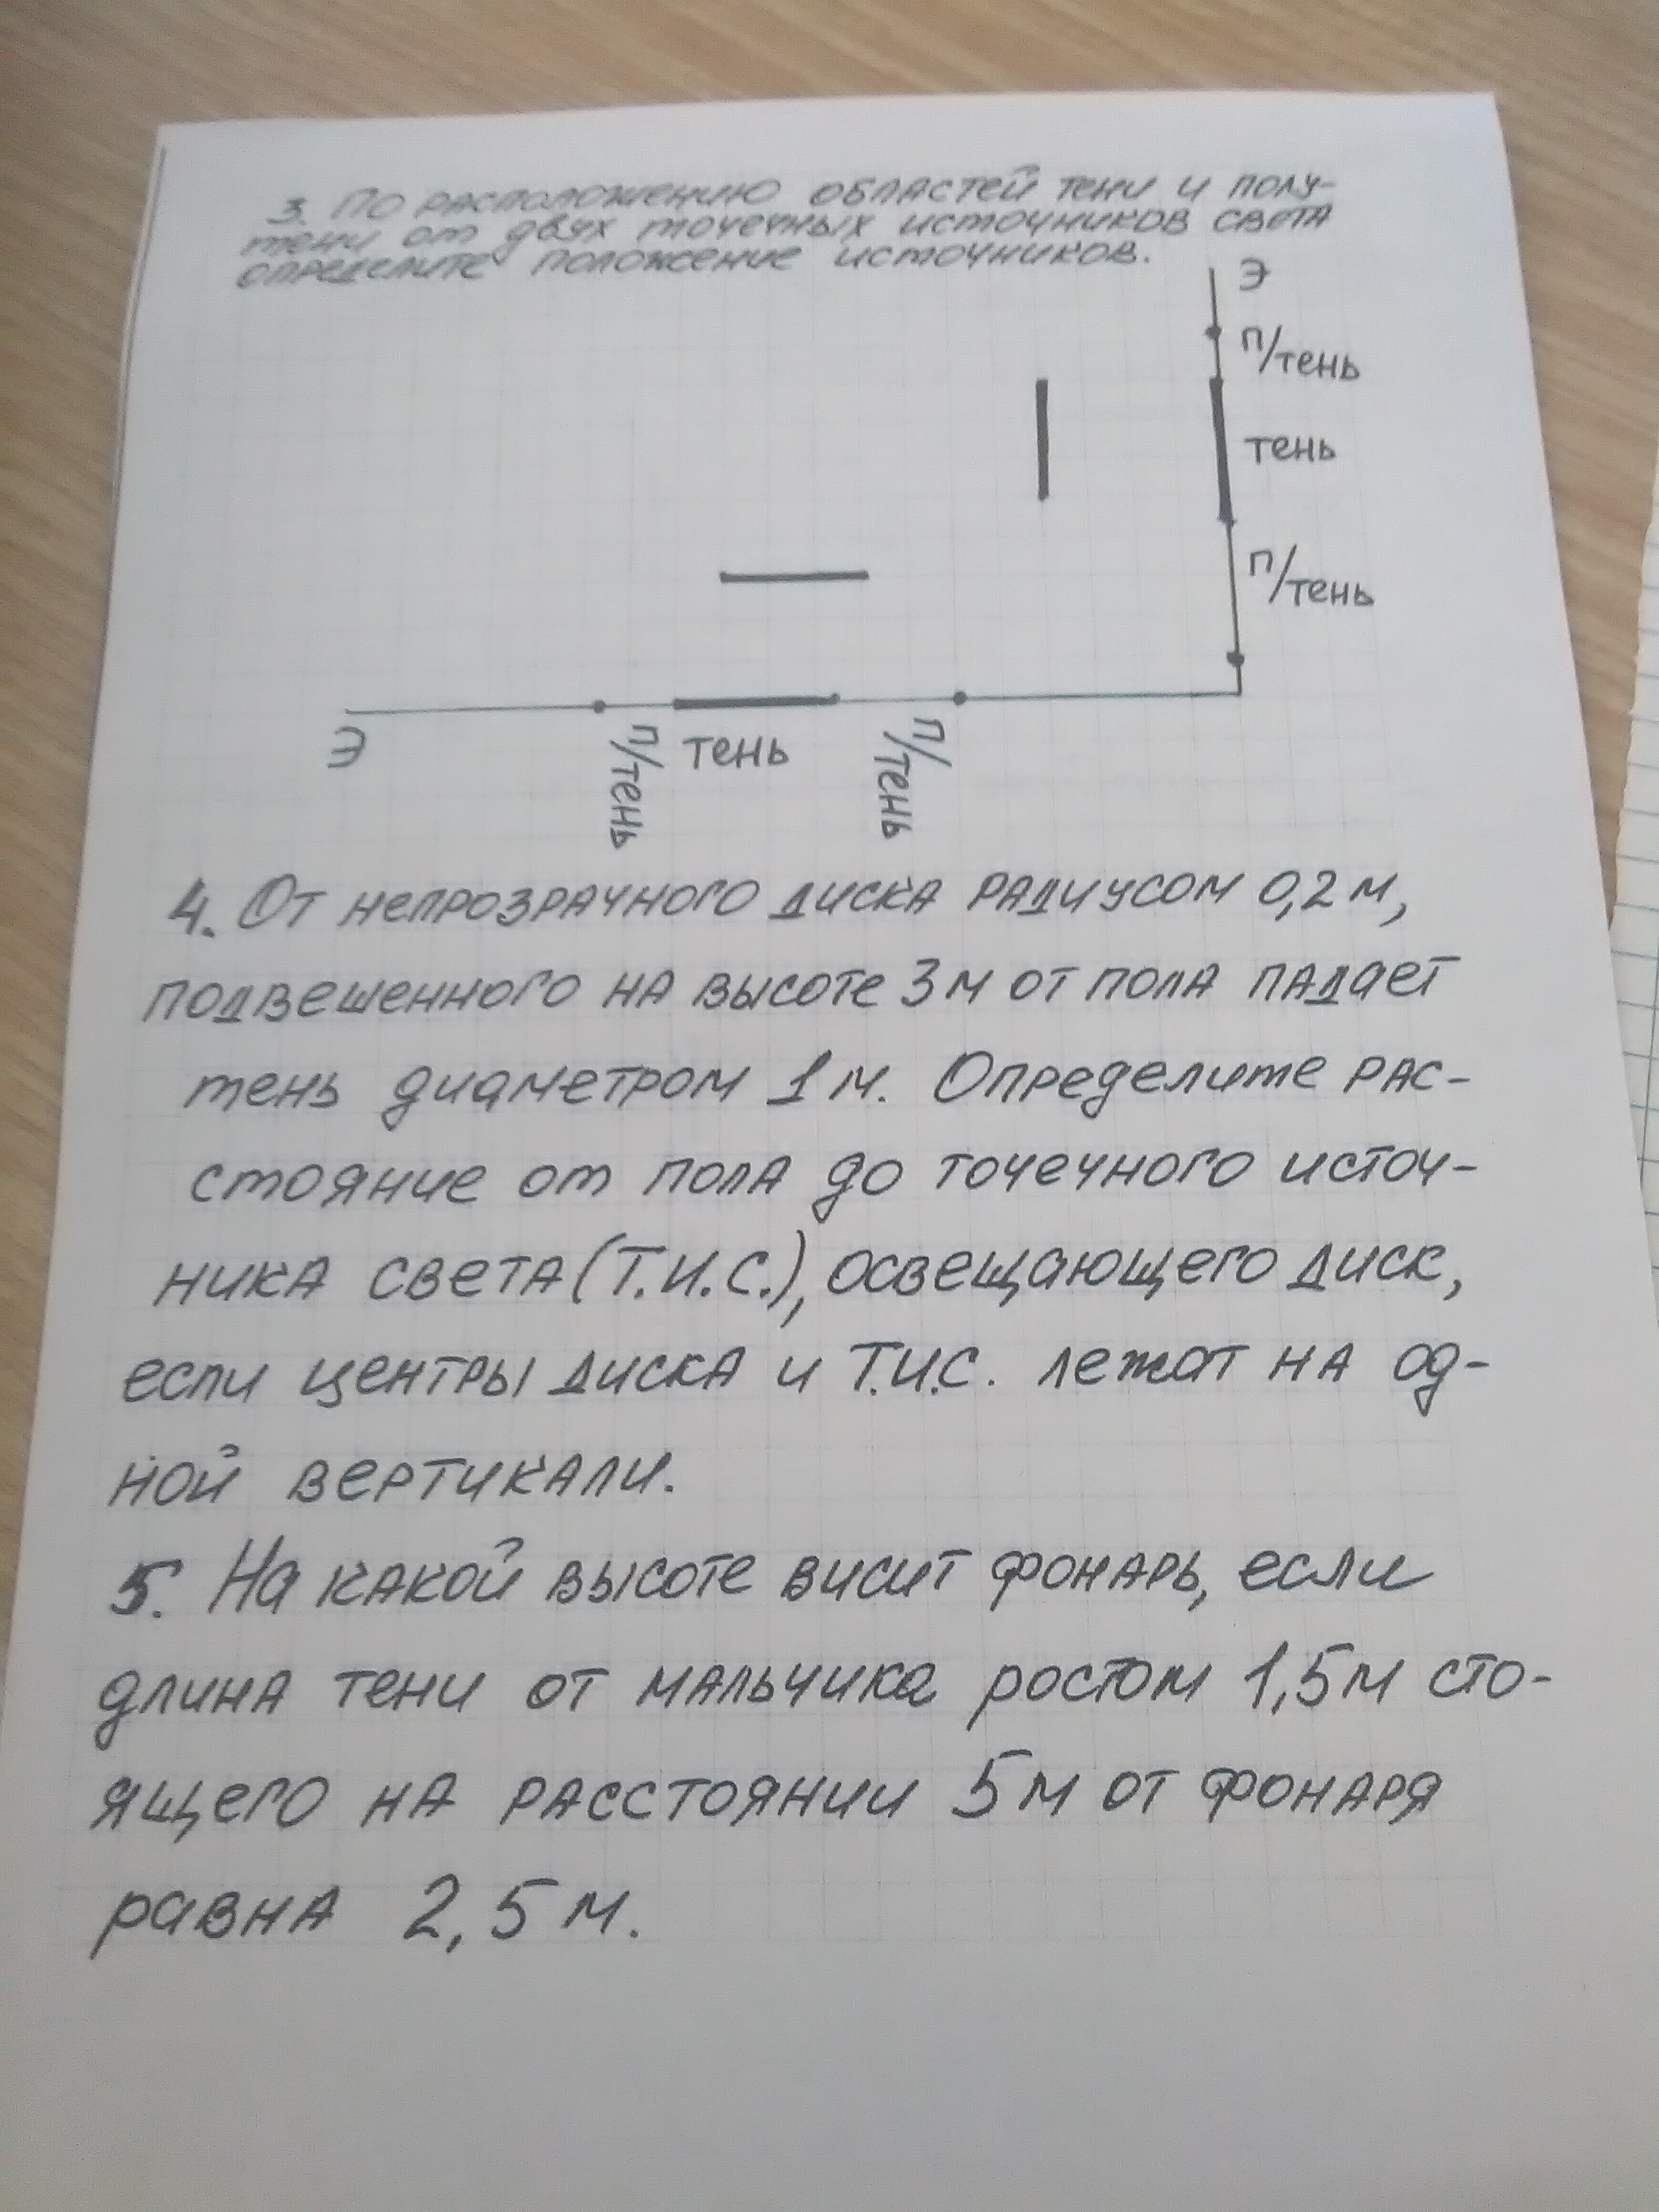 3. По расположению областей тени и полу-
тени от двух точечных источников света
определите положение источников.
Э
п/тень
тень
п/тень
Э
п/тень
тень
п/тень
4. От непрозрачного диска радиусом 0,2 м,
подвешенного на высоте 3 м от пола падает
тень диаметром 1 м. Определите рас-
стояние от пола до точечного источ-
ника света (Т.И.С.), освещающего диск,
если центры диска и Т.И.С. лежат на од-
ной вертикали.
5. На какой высоте висит фонарь, если
длина тени от мальчика ростом 1,5 м сто-
ящего на расстоянии 5 м от фонаря
равна 2,5 м.